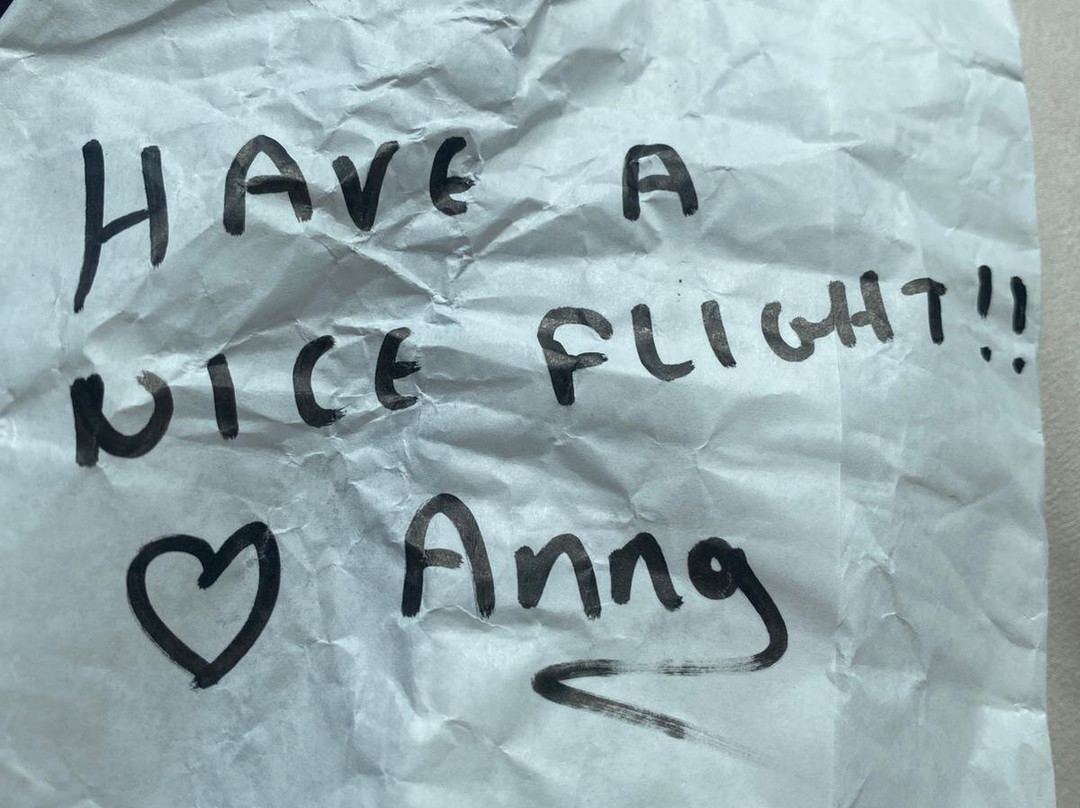 HAVE A
NICE FLIGHT!!
♡ Anna